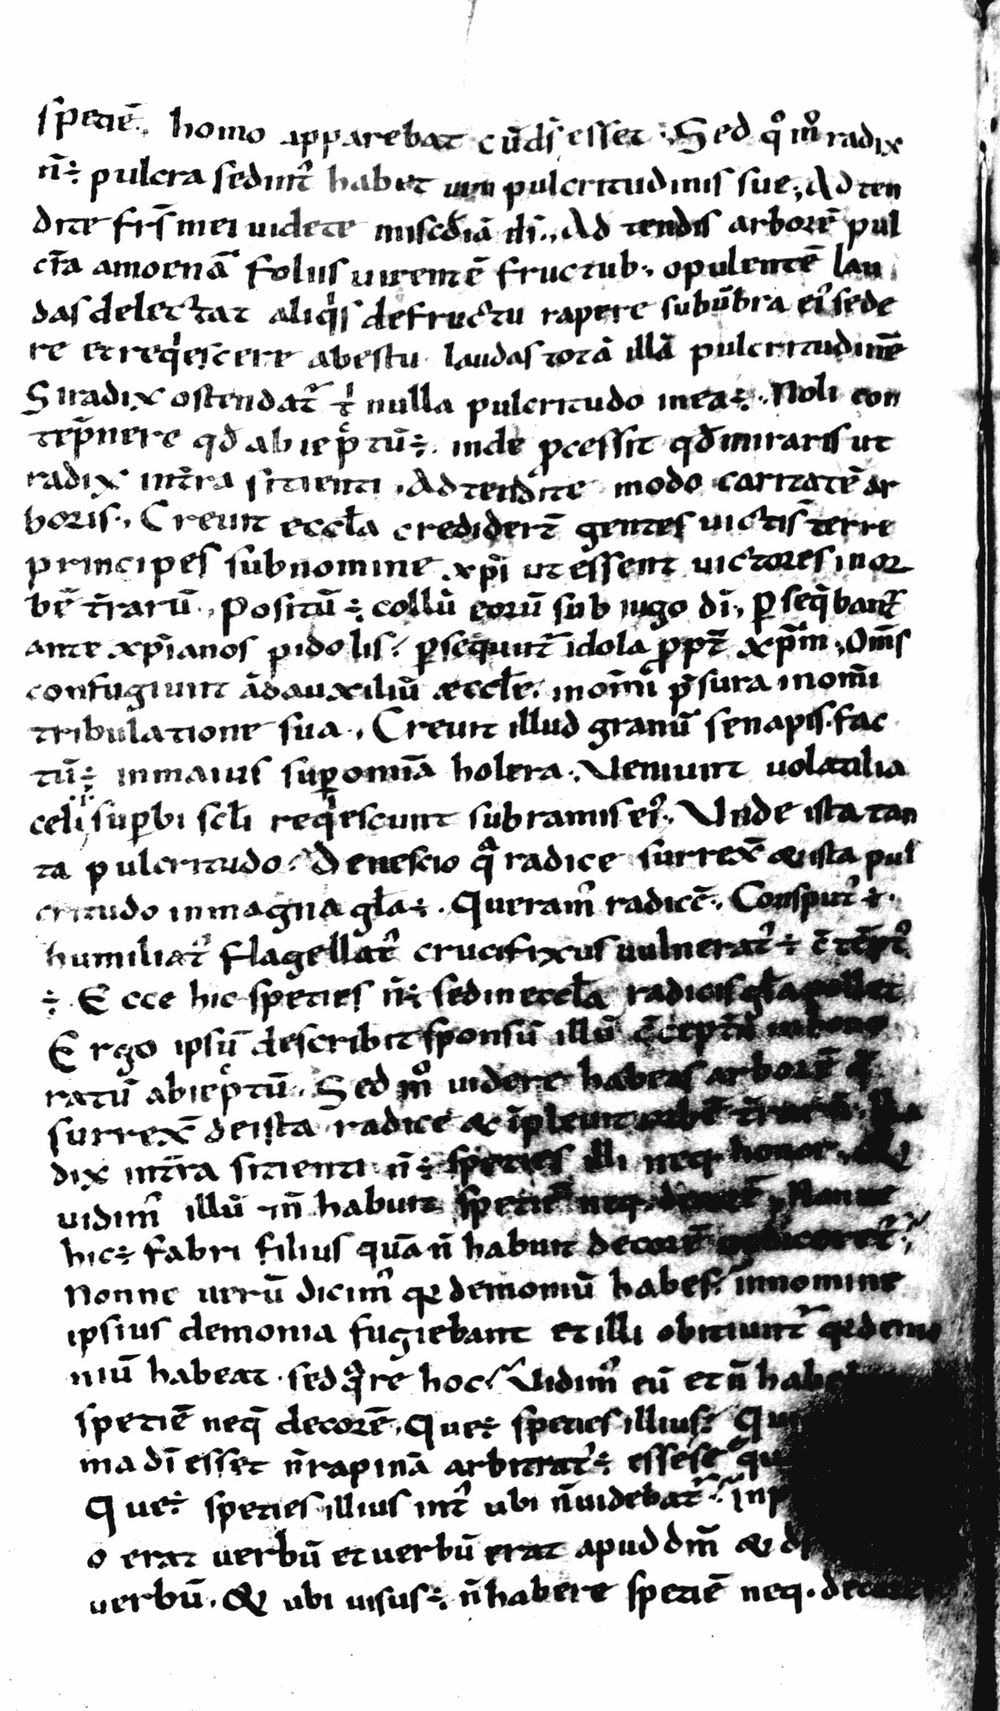 spetiē. homo apparebat cū d̄s esset. Sed qͦ m̊ radix
n̄ ÷ pulcra sed intꝰ habet uim pulcritudinis sue; Ad ten
dite fr̄s mei uidete miscd̄iā dī., Ad tendis arborē pul
crā amoenā foliis uirentē fructub; opulentē lau
das delectat aliqͥs de fructu rapere sub ūbra eiꝰ sede
re et reqͥescere ab estu laudas totā illā pulcritudinē
Si radix ostendat᷒ tͥ nulla pulcritudo in ea ÷. Noli con
tēpnere qd̄ abiectū ÷ inde ꝓcessit qd̄ miraris ut
radix in t̄ra sitienti. Ad tendite modo caritatē ar
boris., Creuit eccl̄a credidert̄ gentes uicti s̄ terre
principes sub nomine xp̄i ut essent uictores in or
bē t̄rarū., Positū ÷ collū eorū sub iugo dī., ꝑseq̄bant᷒
ante xp̄ianos ꝓ idolis. ꝑsequunt᷒ idola ꝓpt᷒ xp̄m., Oms̄
confugiunt ad auxiliū æccl̄e. in om̄i p̄sura in om̄i
tribulatione sua., Creuit illud granū senapis. fac
tū ÷ in maius suꝑ omīa holera. Veniunt uolatilia
celi suꝑbi scl̄i reqͥescunt sub ramis eiꝰ. Vnde ista tan
ta pulcritudo. De nescio qᷓ radice surrex̄ & ista pul
critudo in magna gl̄a ÷. Queramꝰ radicē. Consputꝰ ÷.
humiliatꝰ flagellatꝰ crucifixus uulneratꝰ ÷ c̄tēptꝰ
÷. Ecce hic speties n̄ ÷ sed in eccl̄a radicis gl̄a pollet
Ergo ipsū describit sponsū illū c̄tēptū
ratū abiectū. Sed m̊ uidere habetis arborē q̄
surrex̄ de ista radice & īpleuit orbē t̄rarū. Ra
dix in t̄ra sitienti n̄ ÷ speties illi neq. honor. &
uidimꝰ illū & n̄ habuit spetiē neq. decorē, Nonne
hic ÷ fabri filius quā n̄ habuit decorē
Nonne uerū dicimꝰ qꝛ demoniū habes. in nomine
ipsius demonia fugiebant et illi obitiunt᷒ qꝛ demo
niū habeat. sed qͣre hoc. Vidimꝰ eū et n̄
spetiē neq̄ decorē. Que ÷ speties illius.
ma dī esset n̄ rapinā arbitratꝰ ÷ esse se
Que ÷ speties illius intꝰ ubi n̄ uidebat᷒.
o erat uerbū et uerbū erat apud dm̄ &
uerbū. & ubi uisus ÷. n̄ habere spetiē neq. decorē